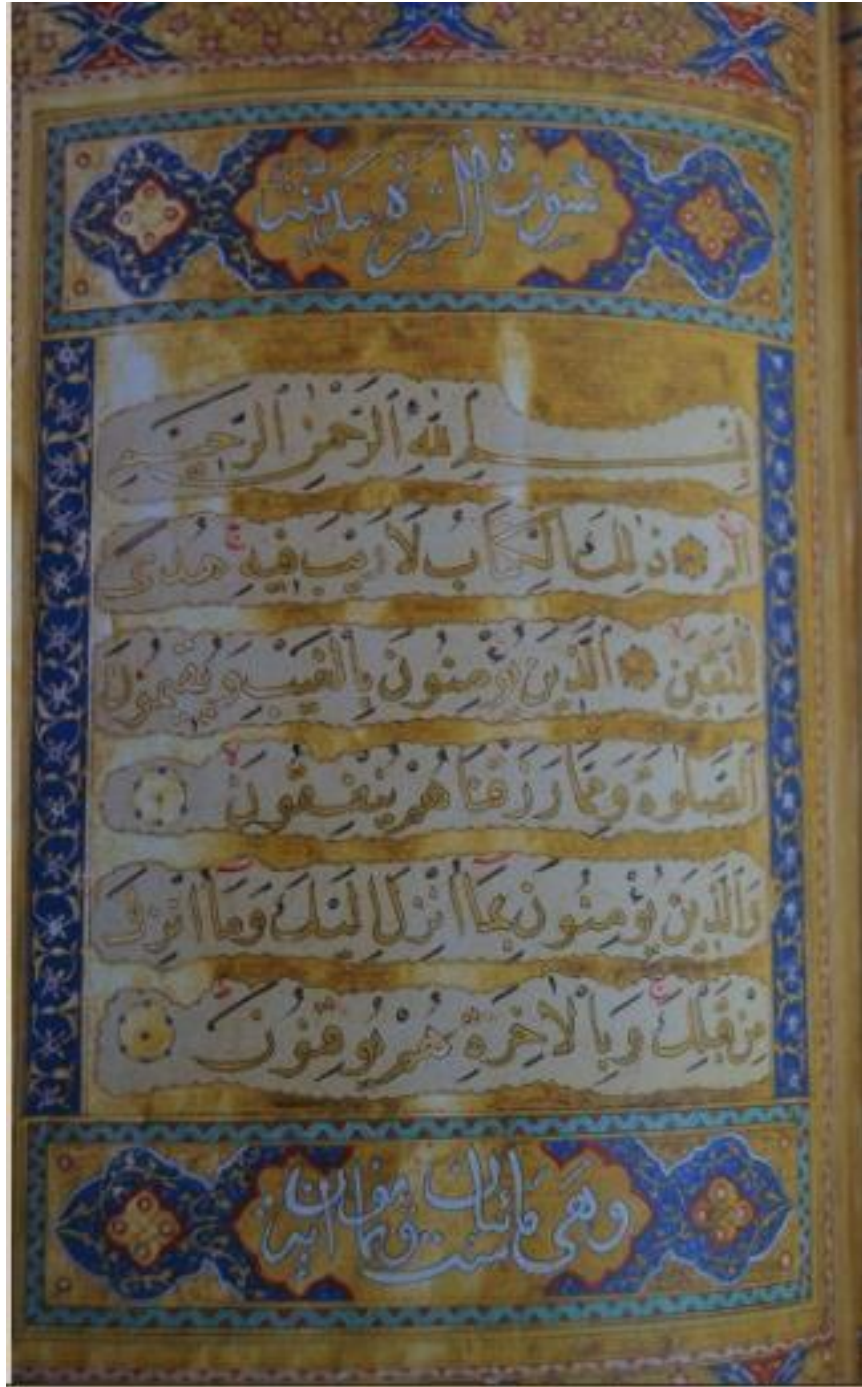 سورة البقرة مدنية
بِسْمِ اللهِ الرَّحْمٰنِ الرَّحِيْمِ
الٓمٓ ذٰلِكَ الْكِتَابُ لَا رَيْبَ فِيهِ ج هُدًى
لِلْمُتَّقِينَ لا الَّذِينَ يُؤْمِنُونَ بِالْغَيْبِ وَيُقِيمُونَ
الصَّلٰوةَ وَمِمَّا رَزَقْنَاهُمْ يُنْفِقُونَ لا
وَالَّذِينَ يُؤْمِنُونَ بِمَا اُنْزِلَ اِلَيْكَ وَمَا اُنْزِلَ
مِنْ قَبْلِكَ ج وَبِالْاٰخِرَةِ هُمْ يُوقِنُونَ ط
وهي مائتان وست وثمانون اية